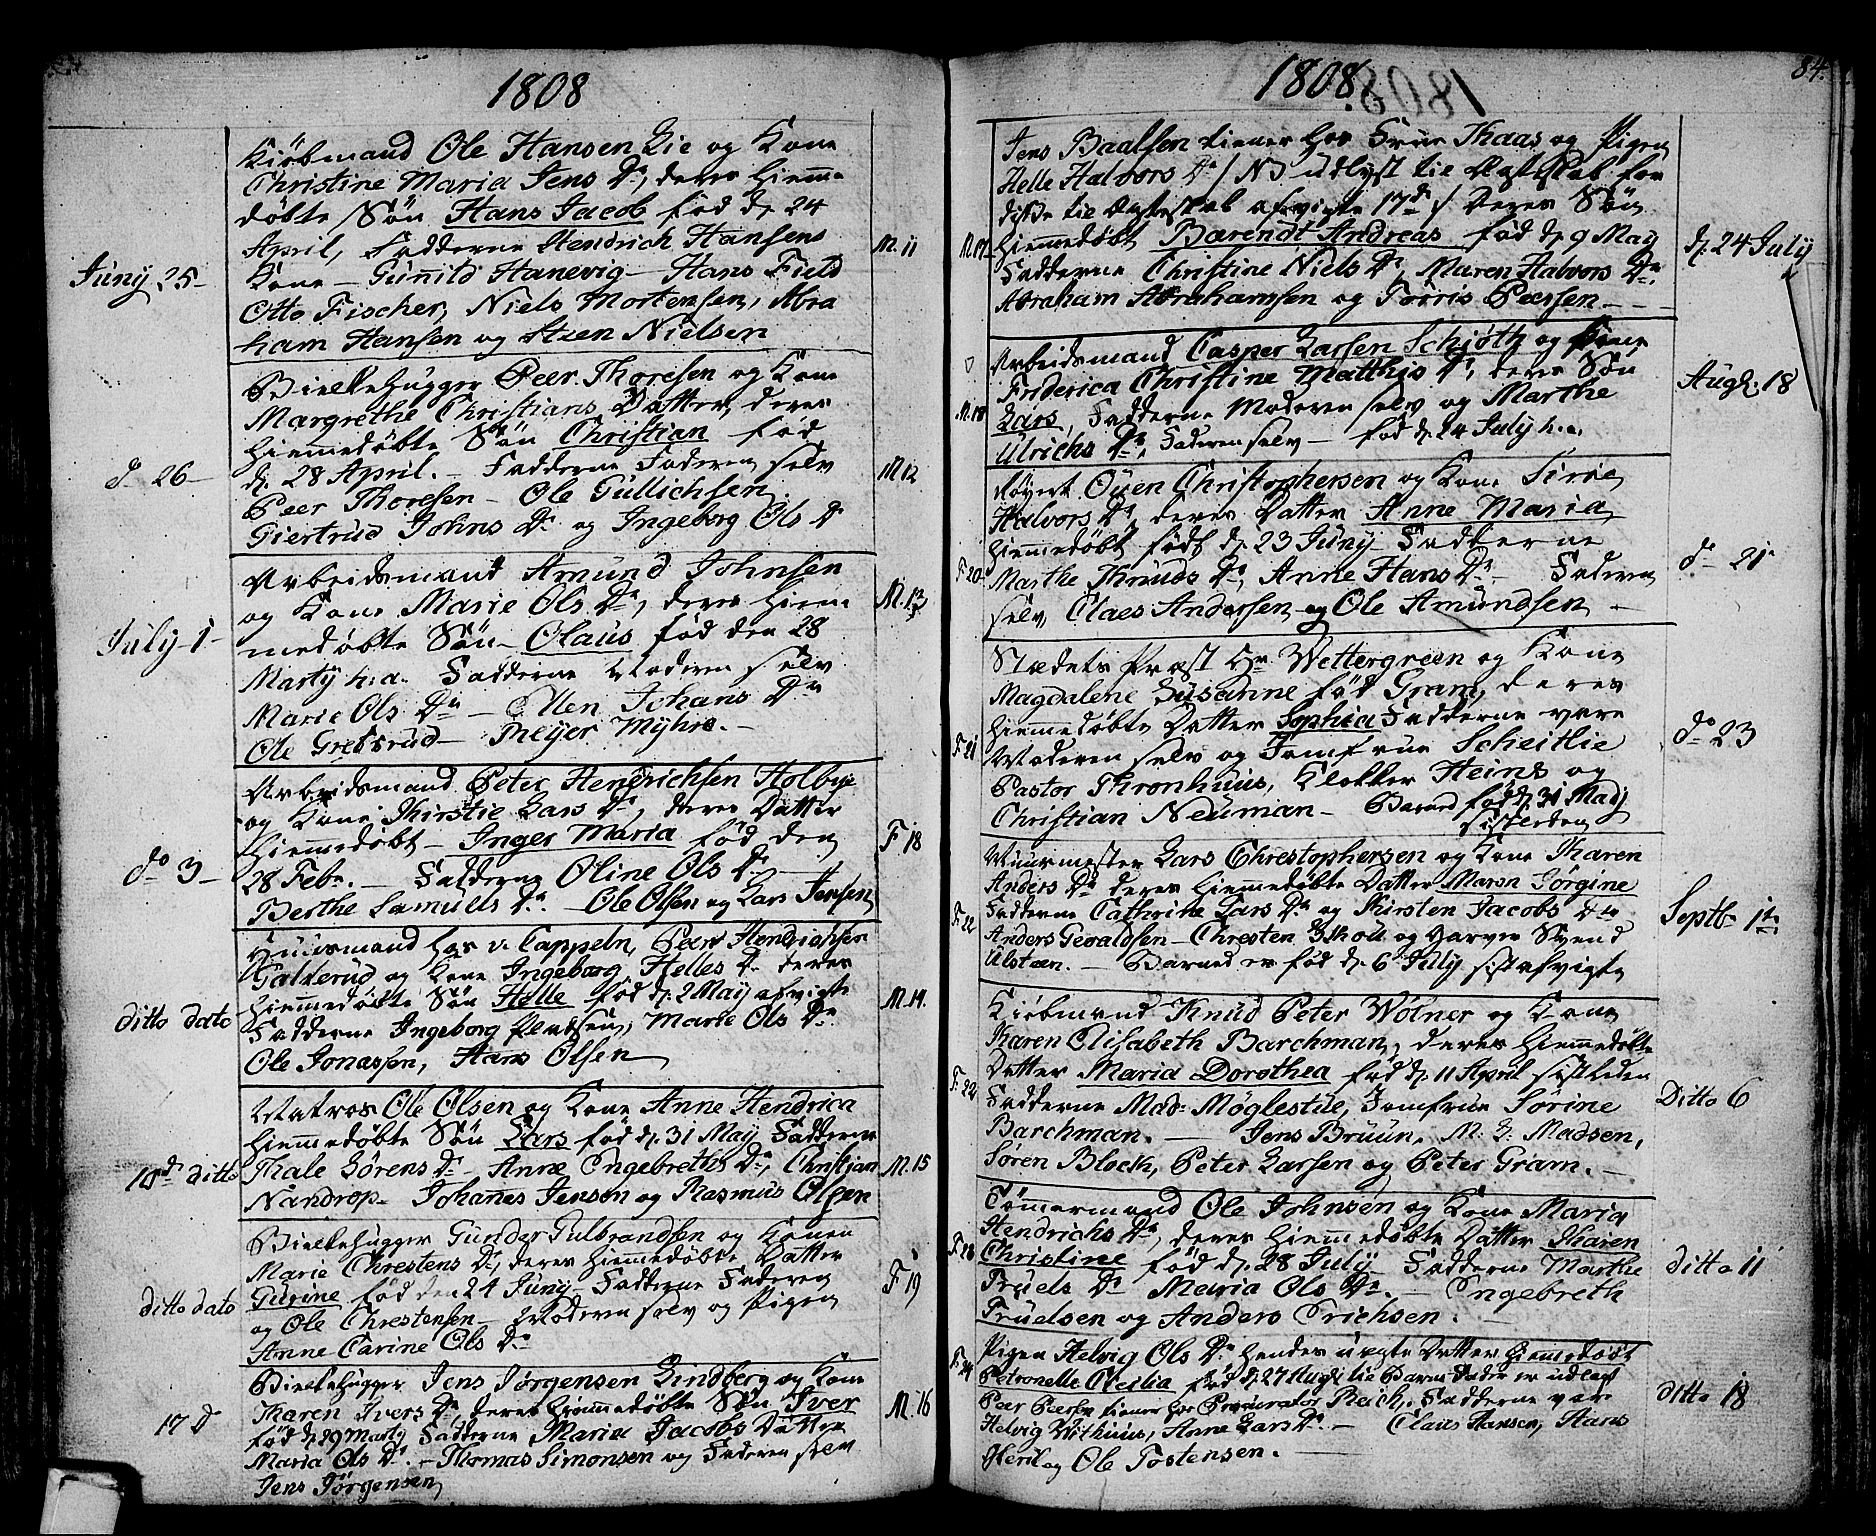 1808
Juny 25
Kiöbmand Ole Hansen Lie og Kone
Christine Maria Jens Dr, deres hiemme
döbte Sön Hans Jacob föd d. 24
April, Fadderne Hendrich Hansens
Kone - Gunild Hanevig - Hans Field
Otto Fischer, Niels Mortensen, Abra
ham Hansen og Nielsen
M. 11
do 26
Bielkehugger Peer Thoresen og Kone
Margrethe Christians Datter, deres
hiemmedöbte Sön Christian föd
d. 28 April. - Fadderne Faderen selv
Peer Thoresen - Ole Gullichsen
Giertrud Johns Dr og Ingeborg Ols Dr
M 12
July 1
Arbeidsmand Amund Johnsen
og Kone Marie Ols Dr, deres hiem
medöbte Sön - Olaus föd den 28
Marty h: a. Fadderne Moderen selv
Marie Ols Dr - Ellen Johans Dr
Ole - Myhre. -
M. 13
do 3
Arbeidsmand Peter Hendrichsen Holbye
og Kone Kirstie Lars Dr, deres Datter
hiemmedöbt - Inger Maria föd den
28 Febr. - Fadderne Oline Ols Dr -
Berthe Samuels Dr. Ole Olsen og Lars Jensen
F. 18
ditto dato
Huusmand hos v. Cappeln, Peer Hendrichsen
og Kone Ingeborg Helles Dr deres
hiemmedöbte Sön Helle föd d. 2 May afvigte
Fadderne Ingeborg, Marie Ols Dr
Ole Jonassen, Hans Olsen
M. 14.
10de ditto
Matros Ole Olsen og Kone Anne Hendrica
hiemmedöbte Sön Lars föd d. 31 May, Fadderne
Thale Sörens Dr - Anne Engebreths Dr, Christian
Nåndrop - Johanes Jenson og Rasmus Olsen
M. 15
ditto dato
Bielkehugger Gunder Gulbrandsen og Konen
Marie Chrestens Dr, deres hiemmedöbte Datter
Gurine föd den 24 Juny - Fadderne Faderen
og Ole Chrestensen - Moderen selv og Pigen
Anne Carine Ols Dr
F 19
17 D
Bielkehugger Jens Jörgensen Lindberg og Kone
Karen Ivers Dr deres hiemmedöbte Sön Iver
föd d. 29 Marty Fadderne Maria Jacobs Datter
Maria Ols Dr. - Thomas Simonsen og Faderen selv
Jens Jörgensen
M. 16
1808.
84.
M. 17
Jens Baalsen tiener hos Frue Kaas og Pigen
Helle Halvors Dr / NB udlyst til Ægteskab for
disse til Ægteskab afvigte 17de / Deres Sön
hiemmedöbt Barendt Andreas föd d. 9 May
Fadderne Christine Niels Dr, Maren Halvors Dr,
Abraham Abrahamsen og Torris Peersen -
d. 24 July
M. 18
Arbeidsmand Casper Larsen Schjöth og Kone,
Friderica Christine Matthis Dr, deres Sön
Lars, Fadderne Moderen selv og Marthe
Ulrichs Dr, Faderen selv - föd d. 24 July h. a.
Augt: 18
F. 20
Ouen Christophersen og Kone Sirie
Halvors Dr, deres Datter Anne Maria
hiemmedöbt födt d. 23 Juny Fadderne
Marthe Knuds Dr, Anne Hans Dr - Faderen
selv, Claes Andersen og Ole Amundsen -
do 21
F. 21
Stædets Præst Hr Wettergreen og Kone
Magdalene Susanne föd Gram, deres
hiemmedöbte Datter Sophia Fadderne vare
Moderen selv og Jomfrue Scheitlie
Pastor Kronhuus, Klokker Heins og
Christian Neuman - Barnet föd d. 31 May
sistleden
do 23
F. 22
Muurmester Lars Chrestophersen og Kone Karen
Anders Dr deres hiemmedöbte Datter Maren Jörgine
Fadderne Cathrine Lars Dr og Kirsten Jacobs Dtr
Anders Gevaldsen - Chresten Skou og Svend
Ulstæen. - Barnet er föd d. 6 July sistafvigte
Septb 1te
F. 22
Kiöbmand Knud Peter Wölner og Kone
Karen Elisabeth Barchman, deres hiemmedöbte
Datter Maria Dorothea föd d. 11 April sistleden
Fadderne Mad: Möglestue, Jomfrue Sörine
Barchman. - Jens Bruun, M. L. Madsen,
Sören Block, Peter Larsen og Peter Gram. -
Ditto 6
F. 23
Tömermand Ole Johnsen og Kone Maria
Hendrichs Dr, deres hiemmedöbte Datter Karen
Christine föd d. 28 July - Fadderne Marthe
Truels Dr Maria Ols Dr. - Engebreth
Truelsen og Anders Erichsen. -
ditto 11
F. 24
Pigen Helvig Ols Dr hendes uægte Datter hiemmedöbt
Petronelle Cecilia föd d. 27 Augt til Barne Fader er udlagt
Peer Peersen tiener hos Procurator Reich. Fadderne vare
Helvig Withuus, Anne Lars Dr. - Claus Hansen, Hans
og Ole Tostensen. -
ditto 18